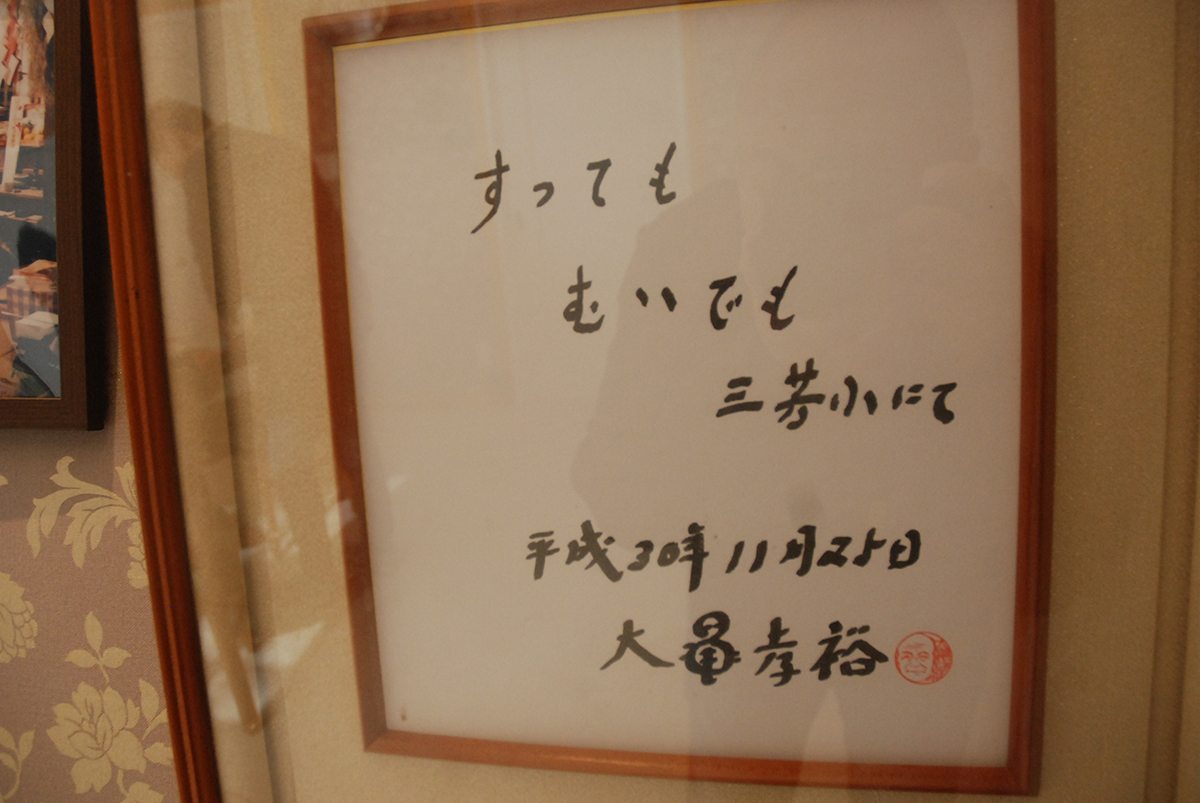 すっても
むいでも
三芳小にて
平成30年11月25日
大亀孝裕